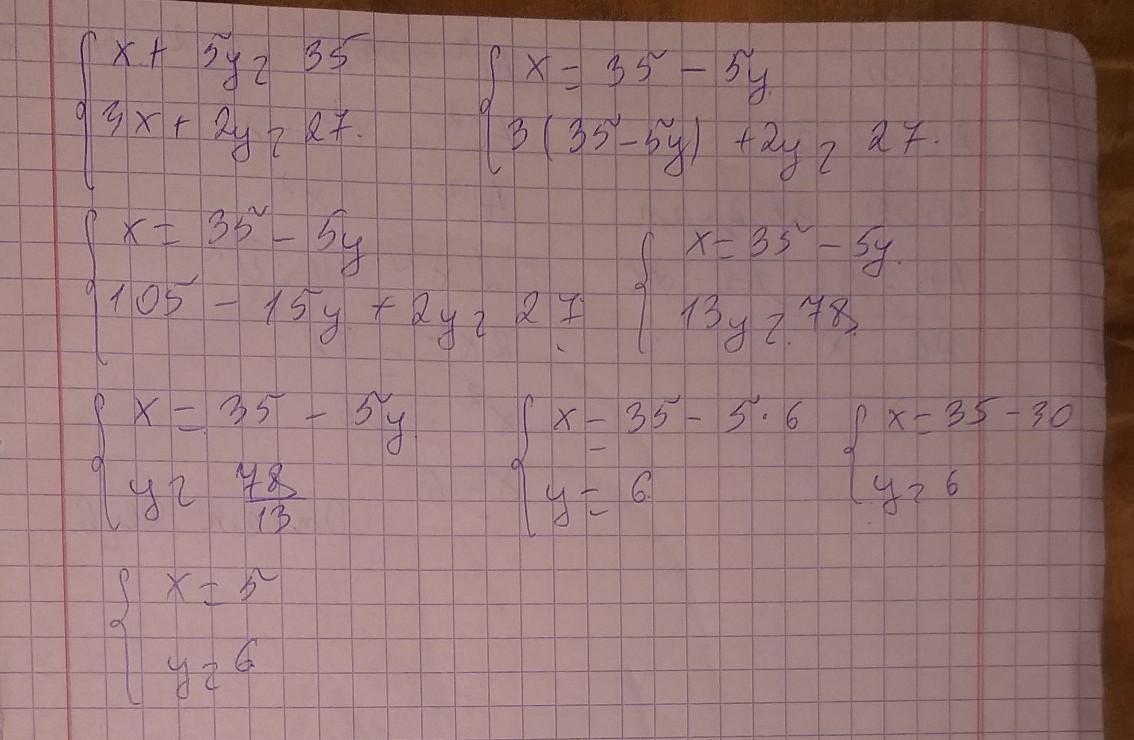 x + 5y = 35
3x + 2y = 27.
x = 35 - 5y
3(35 - 5y) + 2y = 27.
x = 35 - 5y
105 - 15y + 2y = 27
x = 35 - 5y.
13y = 78
x = 35 - 5y
y = 78/13
x = 35 - 5 · 6
y = 6
x = 35 - 30
y = 6
x = 5
y = 6